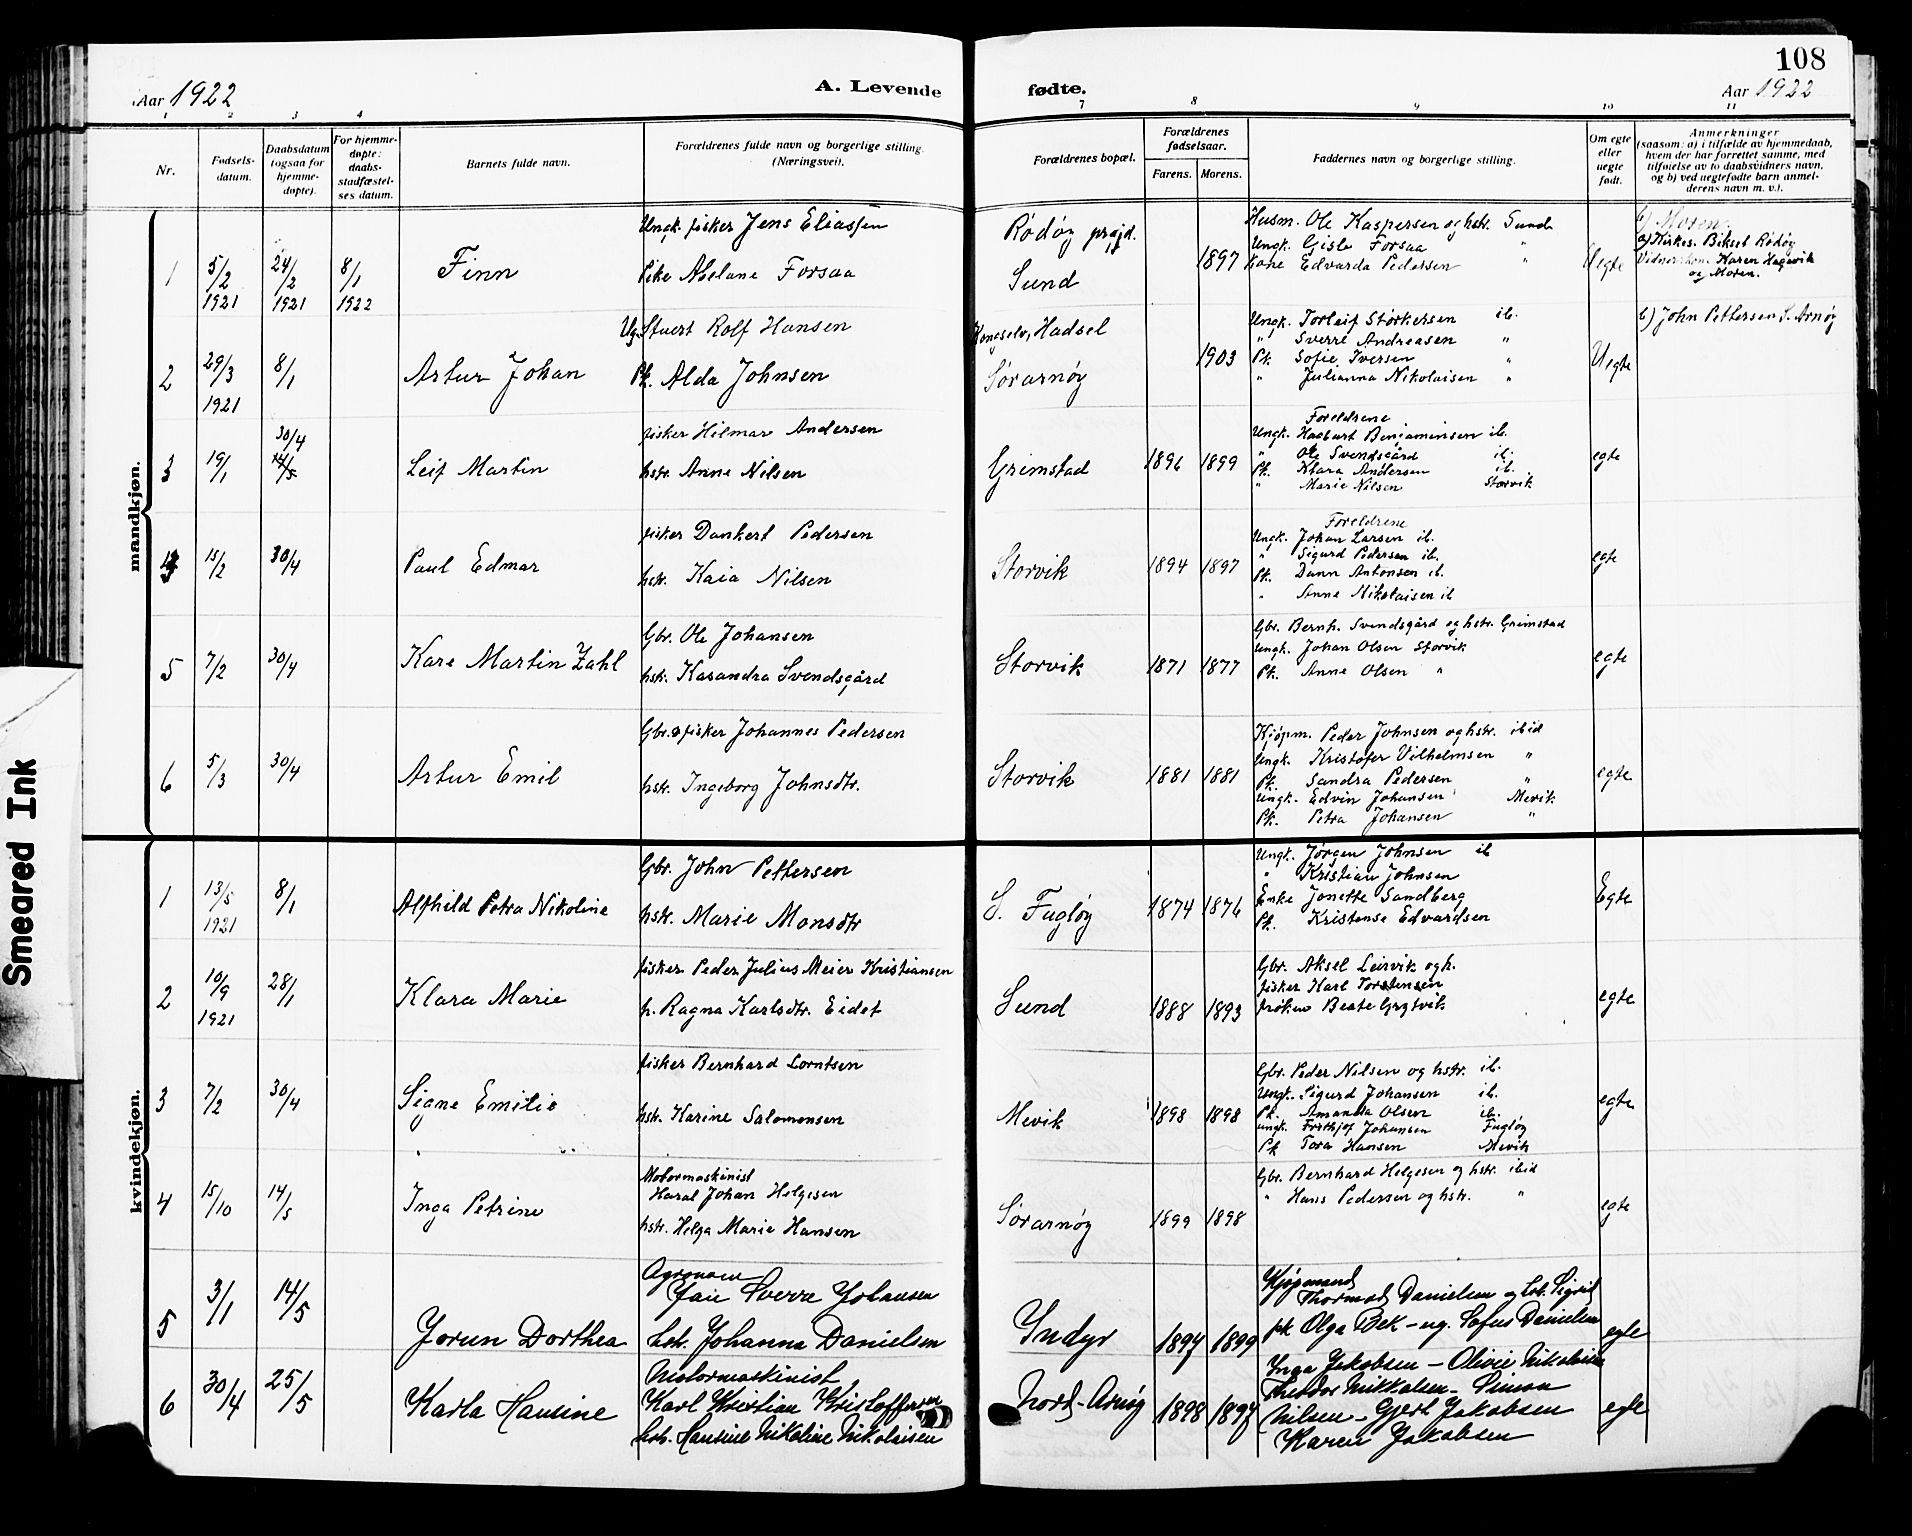 108
Aar 1922
A. Levende
fødte.
Aar 1922
1 2 3 4 7 8 9 10 11
Nr.
Fødsels-
datum.
Daabsdatum
(ogsaa for
hjemme-
døpte).
For hjemme-
døpte:
daabs-
stadfæstel-
ses datum.
Barnets fulde navn.
Forældrenes fulde navn og borgerlige stilling.
(Næringsvei).
Forældrenes bopæl.
Forældrenes
fødselsaar.
Farens. Morens.
Faddernes navn og borgerlige stilling.
Om egte
eller
uegte
født.
Anmerkninger
(saasom: a) i tilfælde av hjemmedaab,
hvem der har forrettet samme, med
tilføielse av to daabsvidners navn,
og b) ved uegtefødte barn anmel-
derens navn m. v.).
mandkjøn.
1
5/2
1921
24/2
1921
8/1
1922
Finn
Ungk. fisker Jens Eliassen
Pike Abelone Forsaa
Rødøy prgjd.
Sund
1897
Husm. Ole Kaspersen og hstr. Sund
Ungk. Gisle Forsaa "
Kone Edvarda Pedersen "
Uegte
b) Moren.
a) Kirkes. Biksel Rødøy
Karen Hagevik
og Moren.
2
29/3
1921
8/1
Artur Johan
Ug. Stuert Rolf Hansen
Pk. Alda Johnsen
Kongselv, Hadsel
Sørarnøy
1903
Ungk. Torleif Storkersen ib.
" Sverre Andreasen "
Pk. Sofie Iversen "
" Julianna Nikolaisen "
Uegte
b) John Pettersen S. Arnøy
3
19/1
30/4
14/5
Leif Martin
fisker Hilmar Andersen
hstr. Anne Nilsen
Grimstad
1896 1899
Foreldrene
Ungk. Hagbart Benjaminsen ib.
" Ole Svendsgård ib.
Pk. Klara Andersen ib.
" Marie Nilsen Storvik
egte
4
15/2
30/4
Paul Edmar
fisker Dankert Pedersen
hstr. Kaia Nilsen
Storvik
1894 1897
Foreldrene
Ungk. Johan Larsen ib.
" Sigurd Pedersen ib.
Pk. Antonsen ib.
" Anne Nikolaisen ib
egte
5
7/2
30/4
Kare Martin Zahl
Gbr. Ole Johansen
hstr. Kasandra Svendsgård
Storvik
1871 1877
Gbr. Bernh. Svendsgård og hstr. Grimstad
Ungk. Johan Olsen Storvik
Pk. Anne Olsen "
egte
6
5/3
30/4
Artur Emil
Gbr. & fisker Johannes Pedersen
hstr. Ingeborg Johnsdtr.
Storvik
1881 1881
Kjøpm. Peder Johnsen og hstr. ibid
Ungk. Kristofer Vilhelmsen "
Pk. Sandra Pedersen "
Ungk. Edvin Johansen Mevik
Pk. Petra Johansen "
egte
kvindekjøn.
1
13/5
1921
8/1
Alfhild Petra Nikoline
Gbr. John Pettersen
hstr. Marie Monsdtr
S. Fugløy
1874 1876
Ungk. Jørgen Johnsen ib
" Kristian Johnsen
Enke Jonette Sandberg
Pk. Kristense Edvardsen
Egte
2
10/9
1921
28/1
Klara Marie
fisker Peder Julius Meier Kristiansen
h. Ragna Karlsdtr. Eidet
Sund
1888 1893
Gbr. Aksel Leirvik og h.
fisker Karl Torstensen
frøken Beate Grytvik
egte
3
7/2
30/4
Signe Emilie
fisker Bernhard Lorntsen
hstr. Karine Salomonsen
Mevik
1898 1898
Gbr. Peder Nilsen og hstr. ib.
Ungk. Sigurd Johansen ib.
Pk. Amanda Olsen ib.
Ungk. Frithjof Johansen Fugløy
Pk Tora Hansen Mevik
egte
4
15/10
14/5
Inga Petrine
Motormaskinist
Haral Johan Helgesen
hstr. Helga Marie Hansen
Sørarnøy
1899 1898
Gbr. Bernhard Helgesen og hstr. ibid
" Hans Pedersen og hstr. "
egte
5
3/1
14/5
Jorun Dorthea
Agronom
Sverre Johansen
hst. Johanna Danielsen
Indyr
1897 1899
Kjøpmand
Thormod Danielsen og hst. Sigrid
pk Olga Bek - ug. Sofus Danielsen
egte
6
30/4
25/5
Karla Hansine
Motormaskinist,
Karl Kristian Kristoffersen
hst. Hansine Nikoline Nikolaisen
Nord-Arnøy
1898 1897
Inga Jakobsen - Olivie Nikolaisen
Theodor Mikkalsen - Simon
Nilsen - Gjert Jakobsen
Karen Jakobsen
egte
Smeared Ink